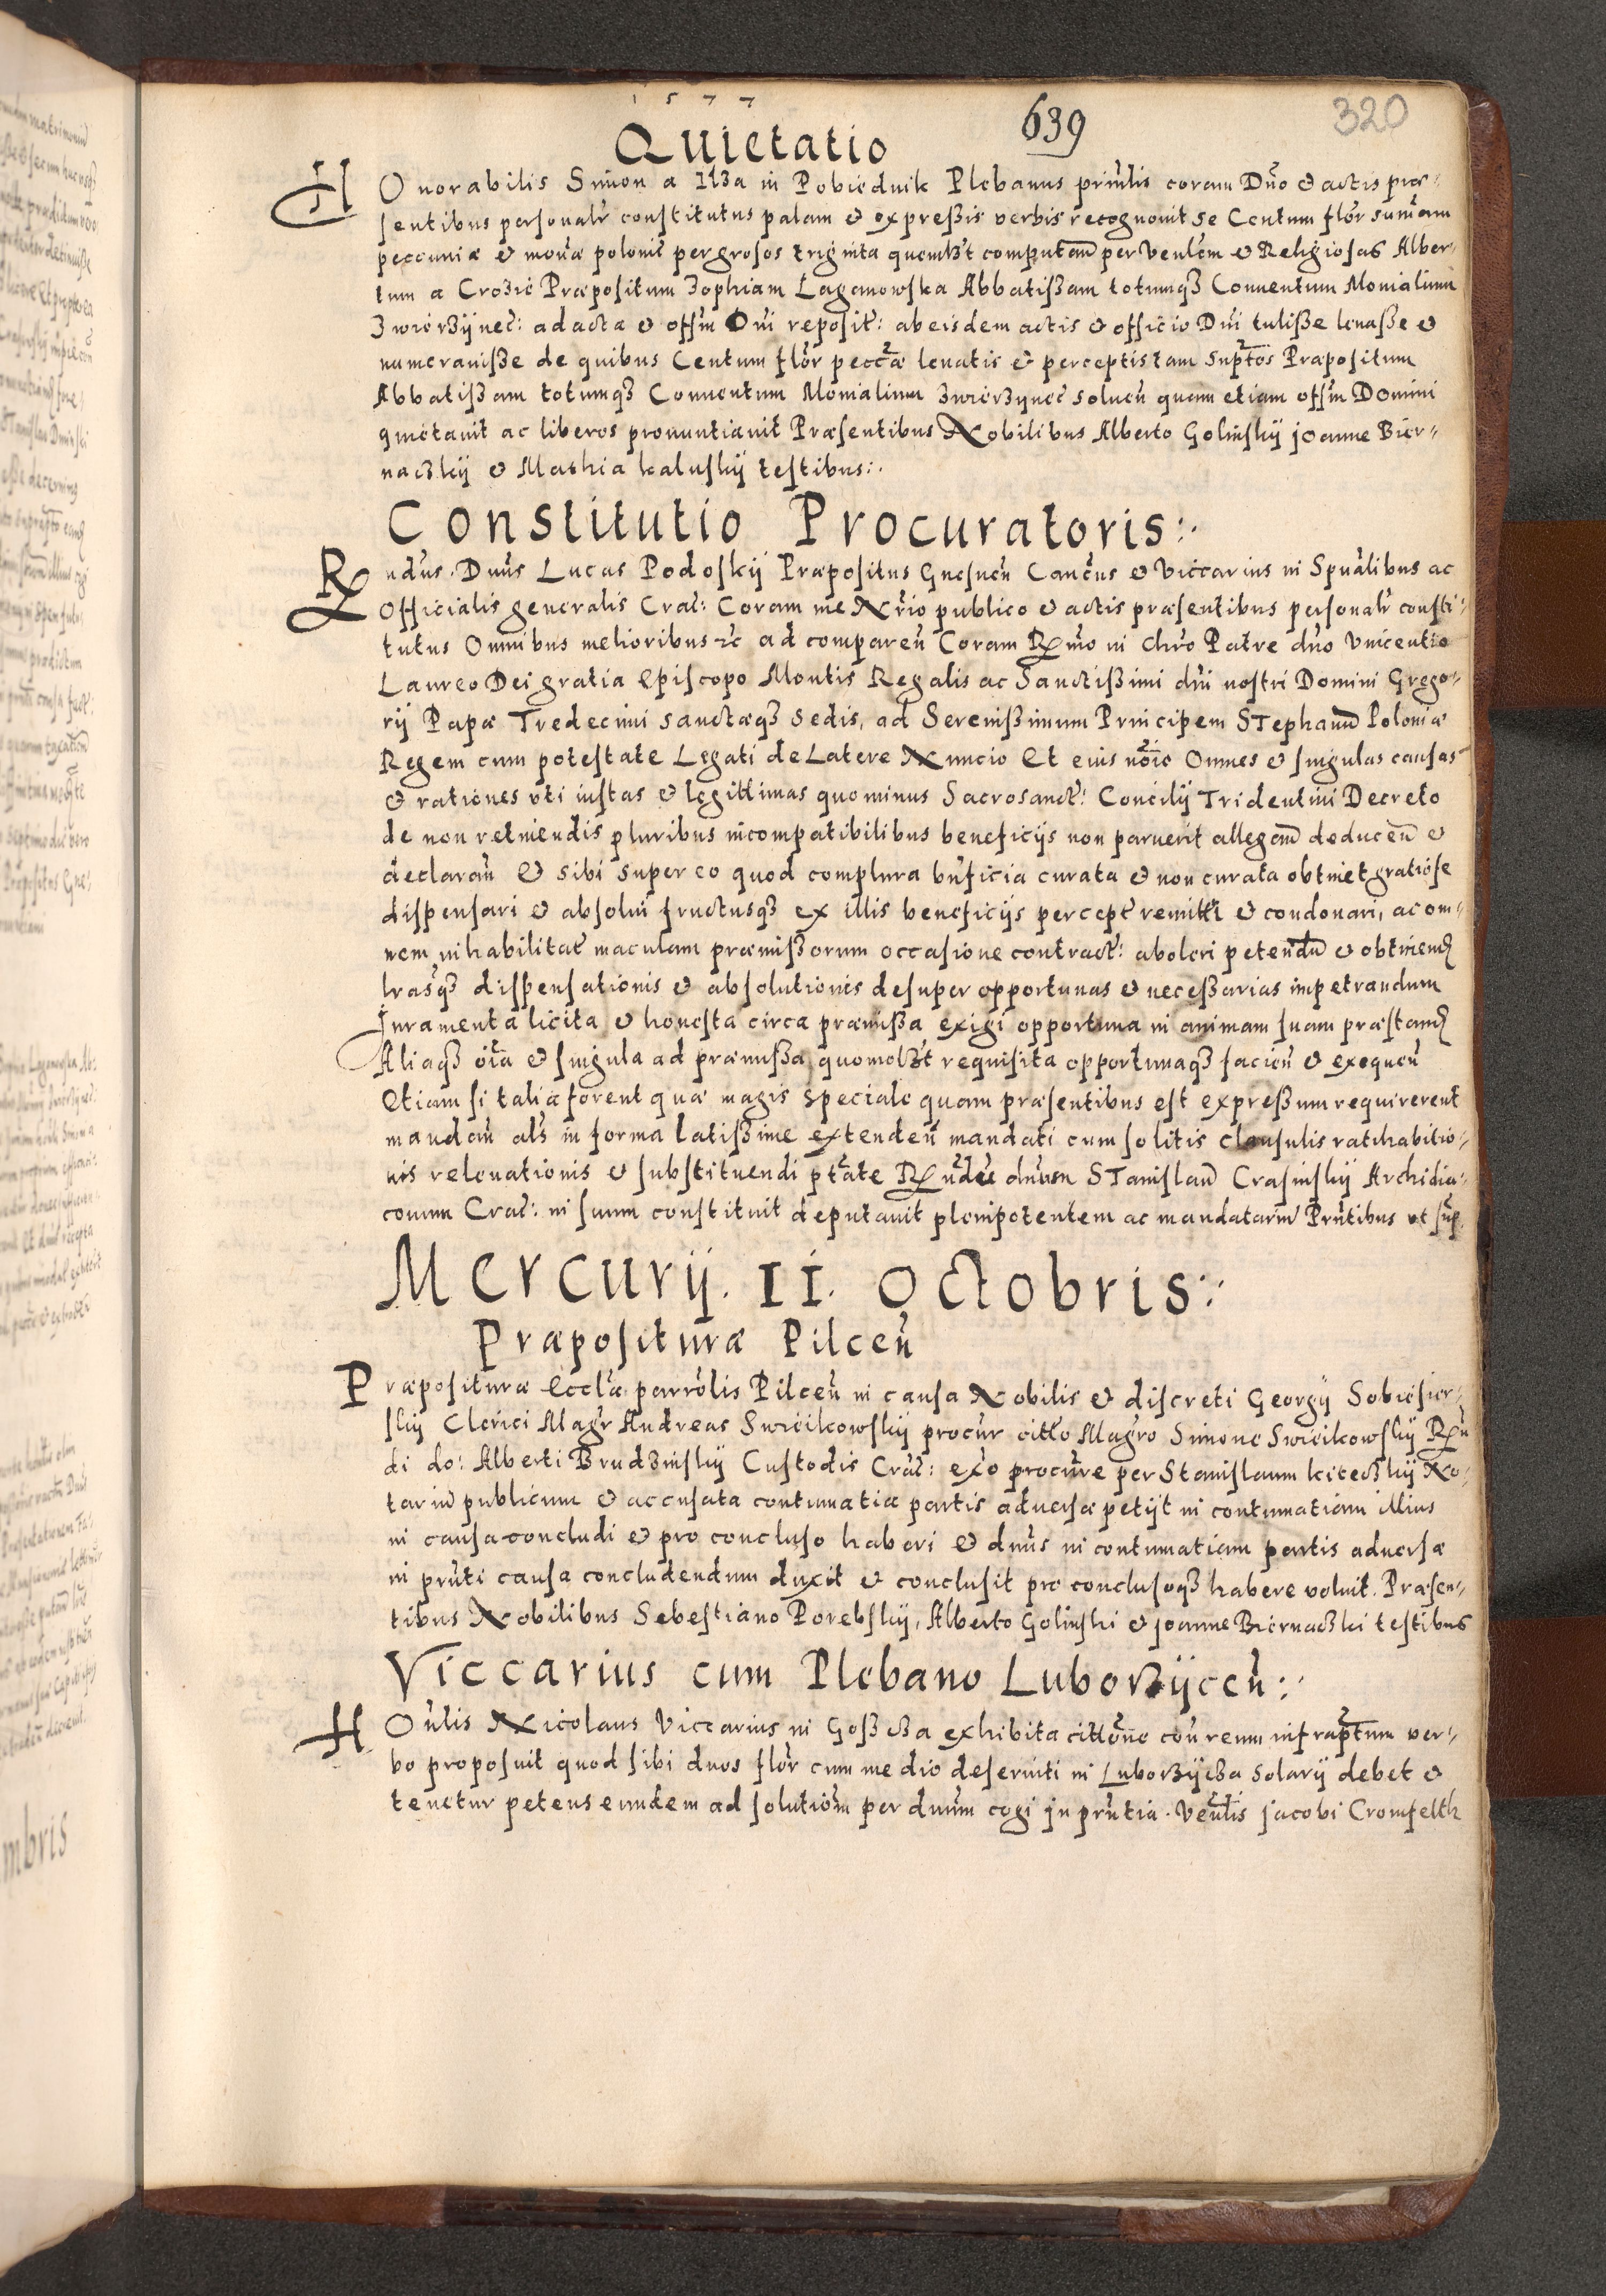 1577
639
320
Quietatio
HOnorabilis Simon a Ilza in Pobiednik Plebanus prinlis coram Dno & actis præ-
sentibus personalr constitutus palam & expressis verbis recognouit se Centum flor sumam
peccuniæ & moñæ poloniĉ per grosos triginta quemlibet computan per Venlem & Religiosas Alber-
tum a Crozic Præpositum Zophiam Lagonowska Abbatissam totumq3 Conuentum Monialium
Zwierzynec: ad acta & offm Dni reposit: ab eisdem actis & officio Dni tulisse leuasse &
numerauisse de quibus Centum flor peccæ leuatis & perceptis tam suptos Præpositum
Abbatissam totumq3 Conuentum Monialium Zwierzynec soluen quam etiam offm Domini
quietauit ac liberos pronuntiauit Præsentibus Nobilibus Alberto Golinskij joanne Bier-
naczkij & Mathia kaluskij testibus:.
Constitutio Procuratoris:.
Rndus Dnus Lucas Podoskij Præpositus Gnesnen Cancus & Viccarius in Spualibus ac
Officialis generalis Crac: Coram me Nrio publico & actis præsentibus personalr consti-
tutus Omnibus melioribus &c ad comparen Coram Rmo in Chro Patre dno Vincentio
Laureo Dei gratia Episcopo Montis Regalis ac Sanctissimi dni nostri Domini Grego-
rij Papæ Tredecimi sanctæq3 sedis, ad Serenissimum Principem STephanu Poloniæ
Regem cum potestate Legati de Latere Nuncio Et eius noie Omnes & singulas causas
& rationes vti iustas & legittimas quominus Sacrosanct: Concilij Tridentini Decreto
de non retinendis pluribus incompatibilibus beneficijs non paruerit allegan deducen &
declaran & sibi super eo quod complura bnficia curata & non curata obtinet gratiose
dispensari & absolui fructusq3 ex illis beneficijs percept remitti & condonari, ac om-
nem inhabilitat maculam præmissorum occasione contract: aboleri petendu & obtinend
lrasq3 dispensationis & absolutionis desuper opportunas & necessarias impetrandum
Juramenta licita & honesta circa præmissa exigi opportuna in animam suam præstand
Aliaq3 oia & singula ad præmissa quomolibet requisita opportunaq3 facien & exequen
Etiam si talia forent quæ magis speciale quam præsentibus est expressum requirerent
mandan als in forma latissime extenden mandati cum solitis clausulis ratihabitio-
nis releuationis & substituendi ptate Rndu dnum STanislau Crasinskij Archidia-
conum Crac: in suum constituit deputauit plenipotentem ac mandatariu Prntibus vt sup.
Mercurij. 11. Octobris:.
Præposituræ Pilcen
Præposituræ Ecclæ parrolis Pilcen in causa Nobilis & discreti Georgij Sobiesier-
skij Clerici Magr Andreas Swieikowskij procur citto Magro Simone Swieikowskij Rn
di do: Alberti Brudzinskij Custodis Crac: exo procure per Stanislaum kiteczkij No-
tariu publicum & accusata contumatia partis aduersæ petijt in contumatiam illius
in causa concludi & pro concluso haberi & dnus in contumatiam partis aduersæ
in prnti causa concludendum duxit & conclusit pro conclusoq3 habere voluit. Præsen-
tibus Nobilibus Sebestiano Porebskij, Alberto Golinski & joanne Biernaczki testibus
Viccarius cum Plebano Luborzycen:.
HOnlis Nicolaus Viccarius in Goszcza exhibita cittone con reum infraptum ver-
bo proposuit quod sibi duos flor cum medio deseruiti in Luborzycza solarij debet &
tenetur petens eundem ad solutiom per dnum cogi in prntia. Venlis jacobi Cromfelth